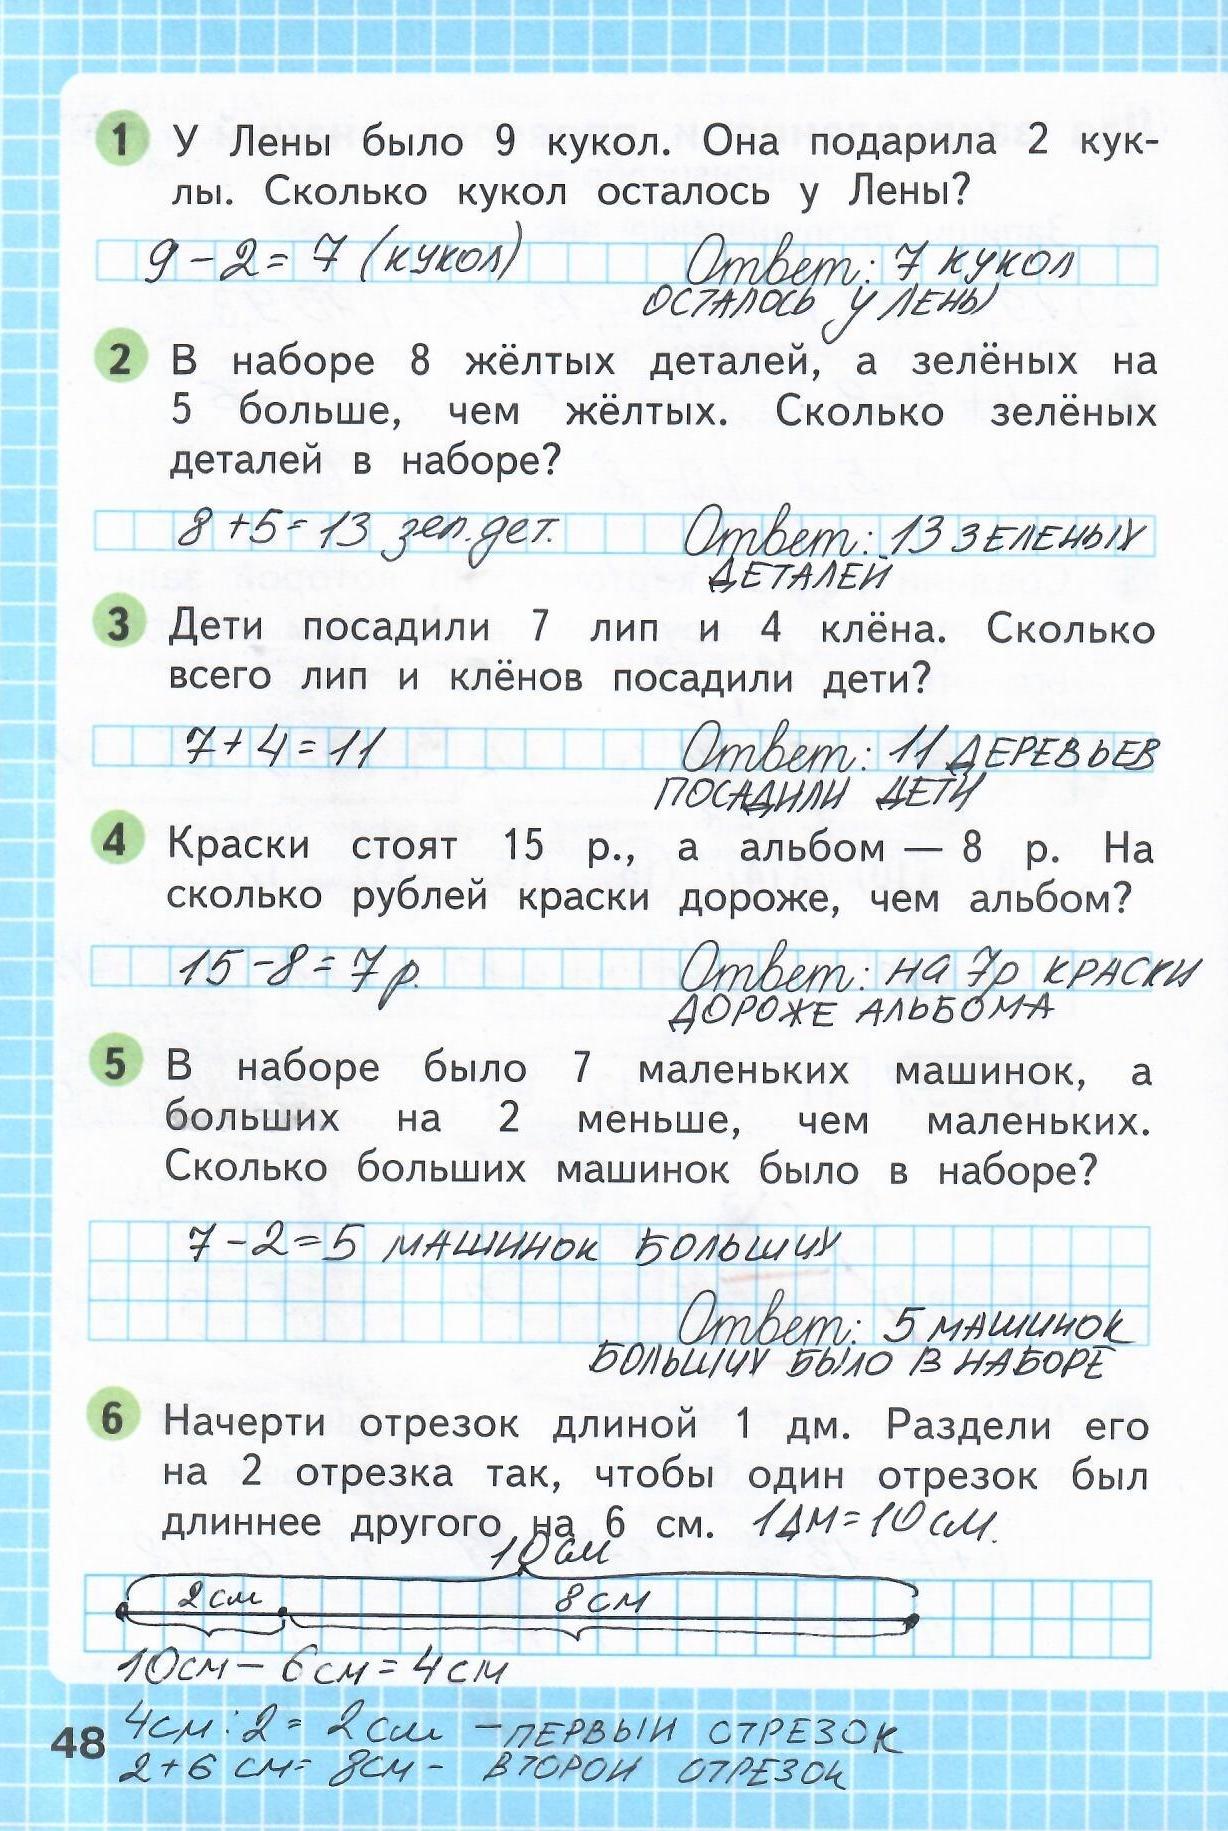 1 У Лены было 9 кукол. Она подарила 2 кук-
лы. Сколько кукол осталось у Лены?
9 - 2 = 7 (кукол) Ответ: 7 кукол
осталось у Лены
2 В наборе 8 жёлтых деталей, а зелёных на
5 больше, чем жёлтых. Сколько зелёных
деталей в наборе?
8 + 5 = 13 зел. дет. Ответ: 13 зеленых
деталей
3 Дети посадили 7 лип и 4 клёна. Сколько
всего лип и клёнов посадили дети?
7 + 4 = 11 Ответ: 11 деревьев
посадили дети
4 Краски стоят 15 р., а альбом — 8 р. На
сколько рублей краски дороже, чем альбом?
15 - 8 = 7 р. Ответ: на 7р краски
дороже альбома
5 В наборе было 7 маленьких машинок, а
больших на 2 меньше, чем маленьких.
Сколько больших машинок было в наборе?
7 - 2 = 5 машинок больших
Ответ: 5 машинок
больших было в наборе
6 Начерти отрезок длиной 1 дм. Раздели его
на 2 отрезка так, чтобы один отрезок был
длиннее другого на 6 см. 1дм = 10 см.
10 см
2 см 8 см
10см - 6 см = 4 см
4см : 2 = 2 см - первый отрезок
48
2 + 6 см = 8см - второй отрезок